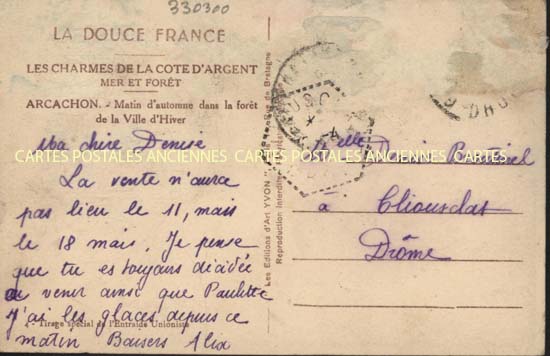 330300
LA DOUCE FRANCE
LES CHARMES DE LA COTE D'ARGENT
MER ET FORÊT
ARCACHON. - Matin d'automne dans la forêt
de la Ville d'Hiver
Ma chère Denise
CARTES POSTALES ANCIENNES CARTES POSTALES ANCIENNES CARTES POSTALES ANCIENNES
La vente n'aura
pas lieu le 11, mais
le 18 mais. Je pense
que tu es toujours décidée
a venir ainsi que Paulette
J'ai les glaces depuis ce
matin Baisers Alix
Tirage spécial de l'Entraide Unioniste
Les Editions d'Art YVON
Reproduction Interdite
de Bretagne
Melle Denise
à Cliousclat
Drôme